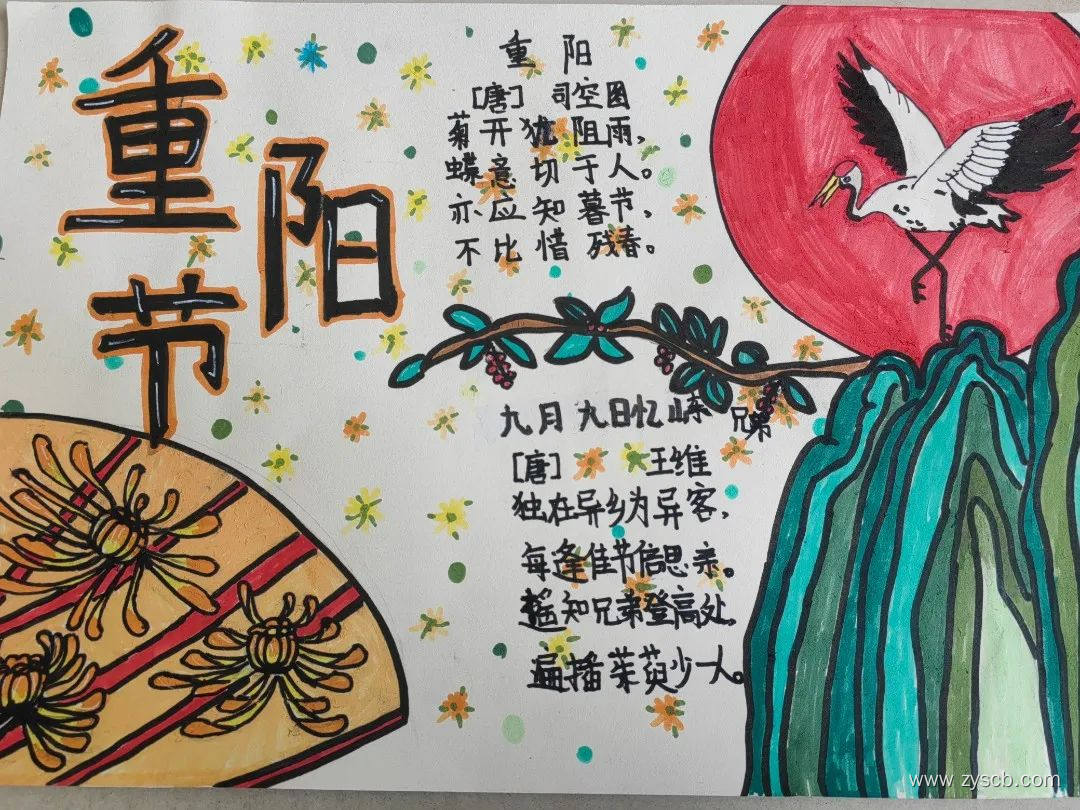 重阳节
重 阳
[唐] 司空图
菊开犹阻雨，
蝶意切于人。
亦应知暮节，
不比惜残春。
九月九日忆山东兄弟
[唐] 王维
独在异乡为异客，
每逢佳节倍思亲。
遥知兄弟登高处，
遍播茱萸少一人。
www.zyscb.com